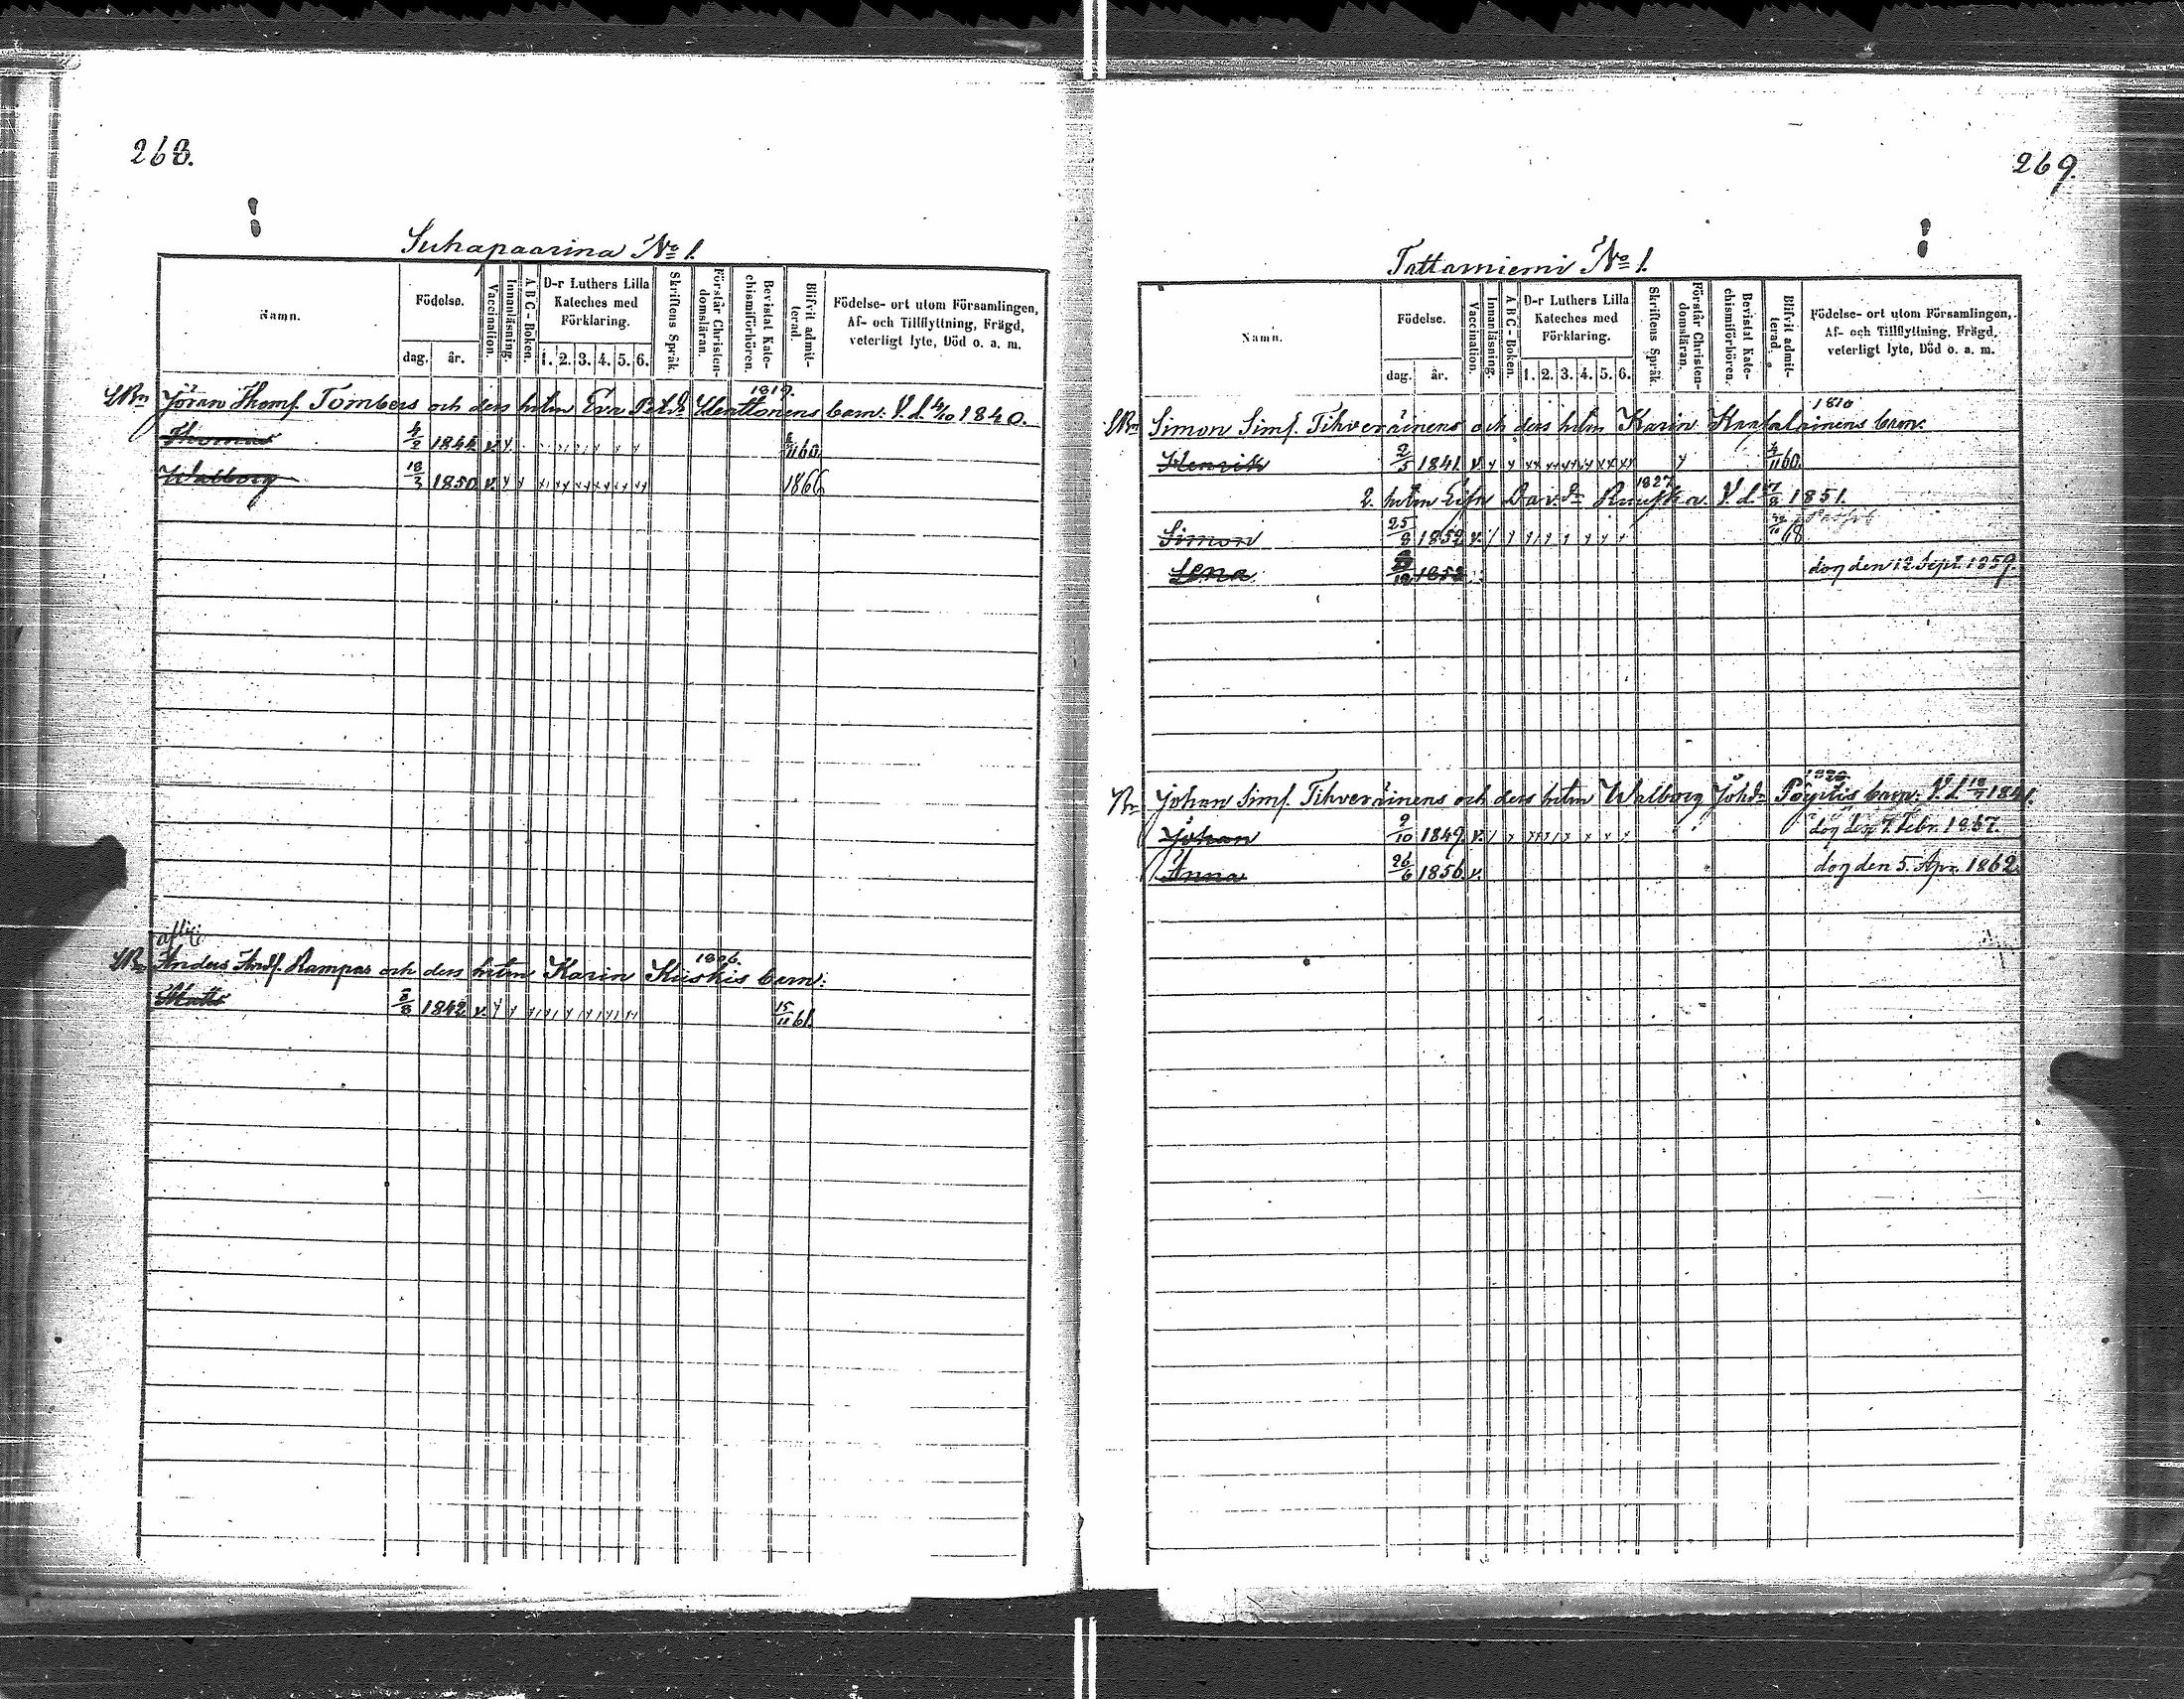 268.
Suhapaarina No 1.
Namn.
Födelse.
dag.
år.
Vaccination.
Innanläsning.
ABC-Boken.
D-r Luthers Lilla Kateches med Förklaring.
1. 2. 3. 4. 5. 6.
Skriftens Språk.
Förstår Christendomsläran.
Bevistat Katechismiförhören.
Blifvit admitterad.
Födelse- ort utom Församlingen, Af- och Tillflyttning, Frägd, veterligt lyte, Död o. a. m.
1819.
Jöran Thoms. Tombers och dess hstru Eva Petdr Henttonens barn. V. d. 4/10 1840.
Thomas 4/2 1844 v.
Walborg 18/3 1850 v. 1866
aflid.
1806.
Anders Ands. Rampas och dess hstru Karin Kiiskis barn:
Matts 8/8 1842 v. 15/11 61.
269.
Tattarniemi No 1.
Namn.
Födelse.
dag.
år.
Vaccination.
Innanläsning.
ABC-Boken.
D-r Luthers Lilla Kateches med Förklaring.
1. 2. 3. 4. 5. 6.
Skriftens Språk.
Förstår Christendomsläran.
Bevistat Katechismiförhören.
Blifvit admitterad.
Födelse- ort utom Församlingen, Af- och Tillflyttning, Frägd, veterligt lyte, Död o. a. m.
1810
Simon Sims. Tihveräinens och dess hstru Karin barn.
Henrik 2/5 1841 v. 4/11 60.
1827
2. hstru Lisa Davdr V. d. 17/8 1851.
Simon 25/8 1852 v. 68
Lena dog den 12 Sept. 1859.
Johan Sims. Tihveräinens och dess hstru Walborg Johdr Pöytis barn. V. d. 1841.
Johan 9/10 1849 v. dog den 7. Febr. 1867.
Anna 26/6 1856 v. dog den 5. Apr. 1862.